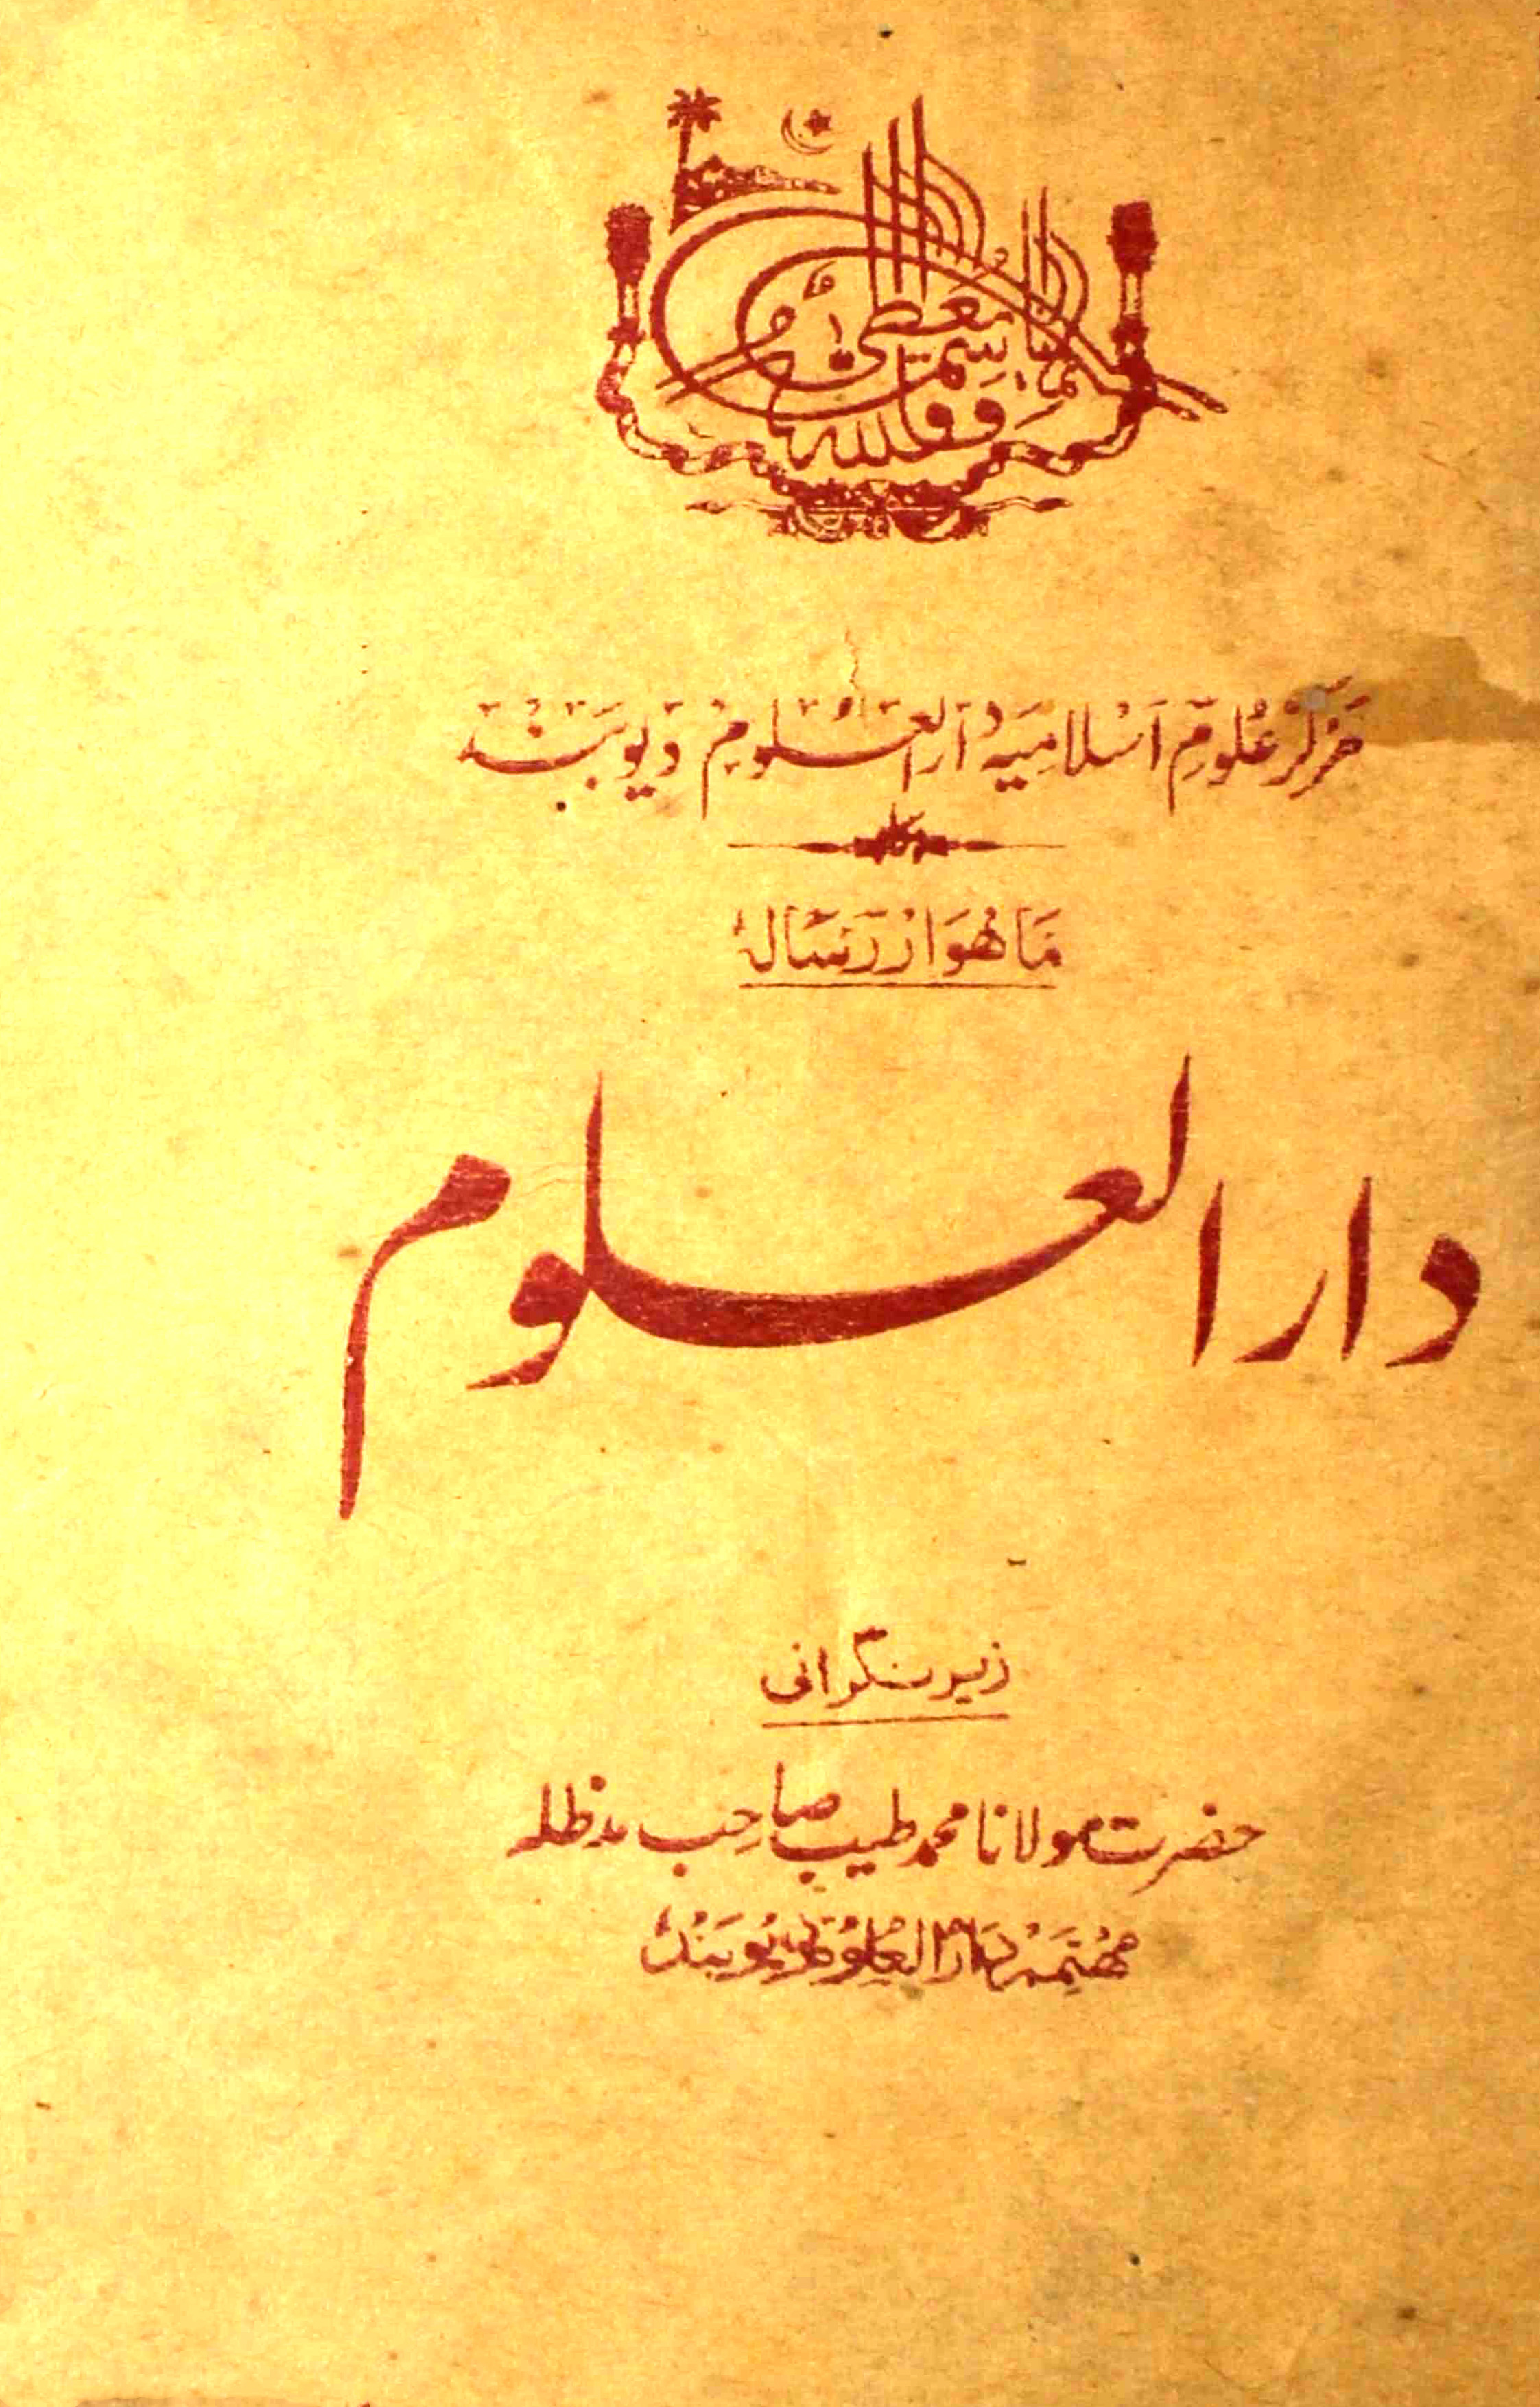 انما انا قاسم والله معطی
مرکز علوم اسلامیہ دارالعلوم دیوبند
ماهوار رسالہ
دارالعلوم
زیر نگرانی
حضرت مولانا محمد طیب صاحب مدظلہ
مہتمم دارالعلوم دیوبند